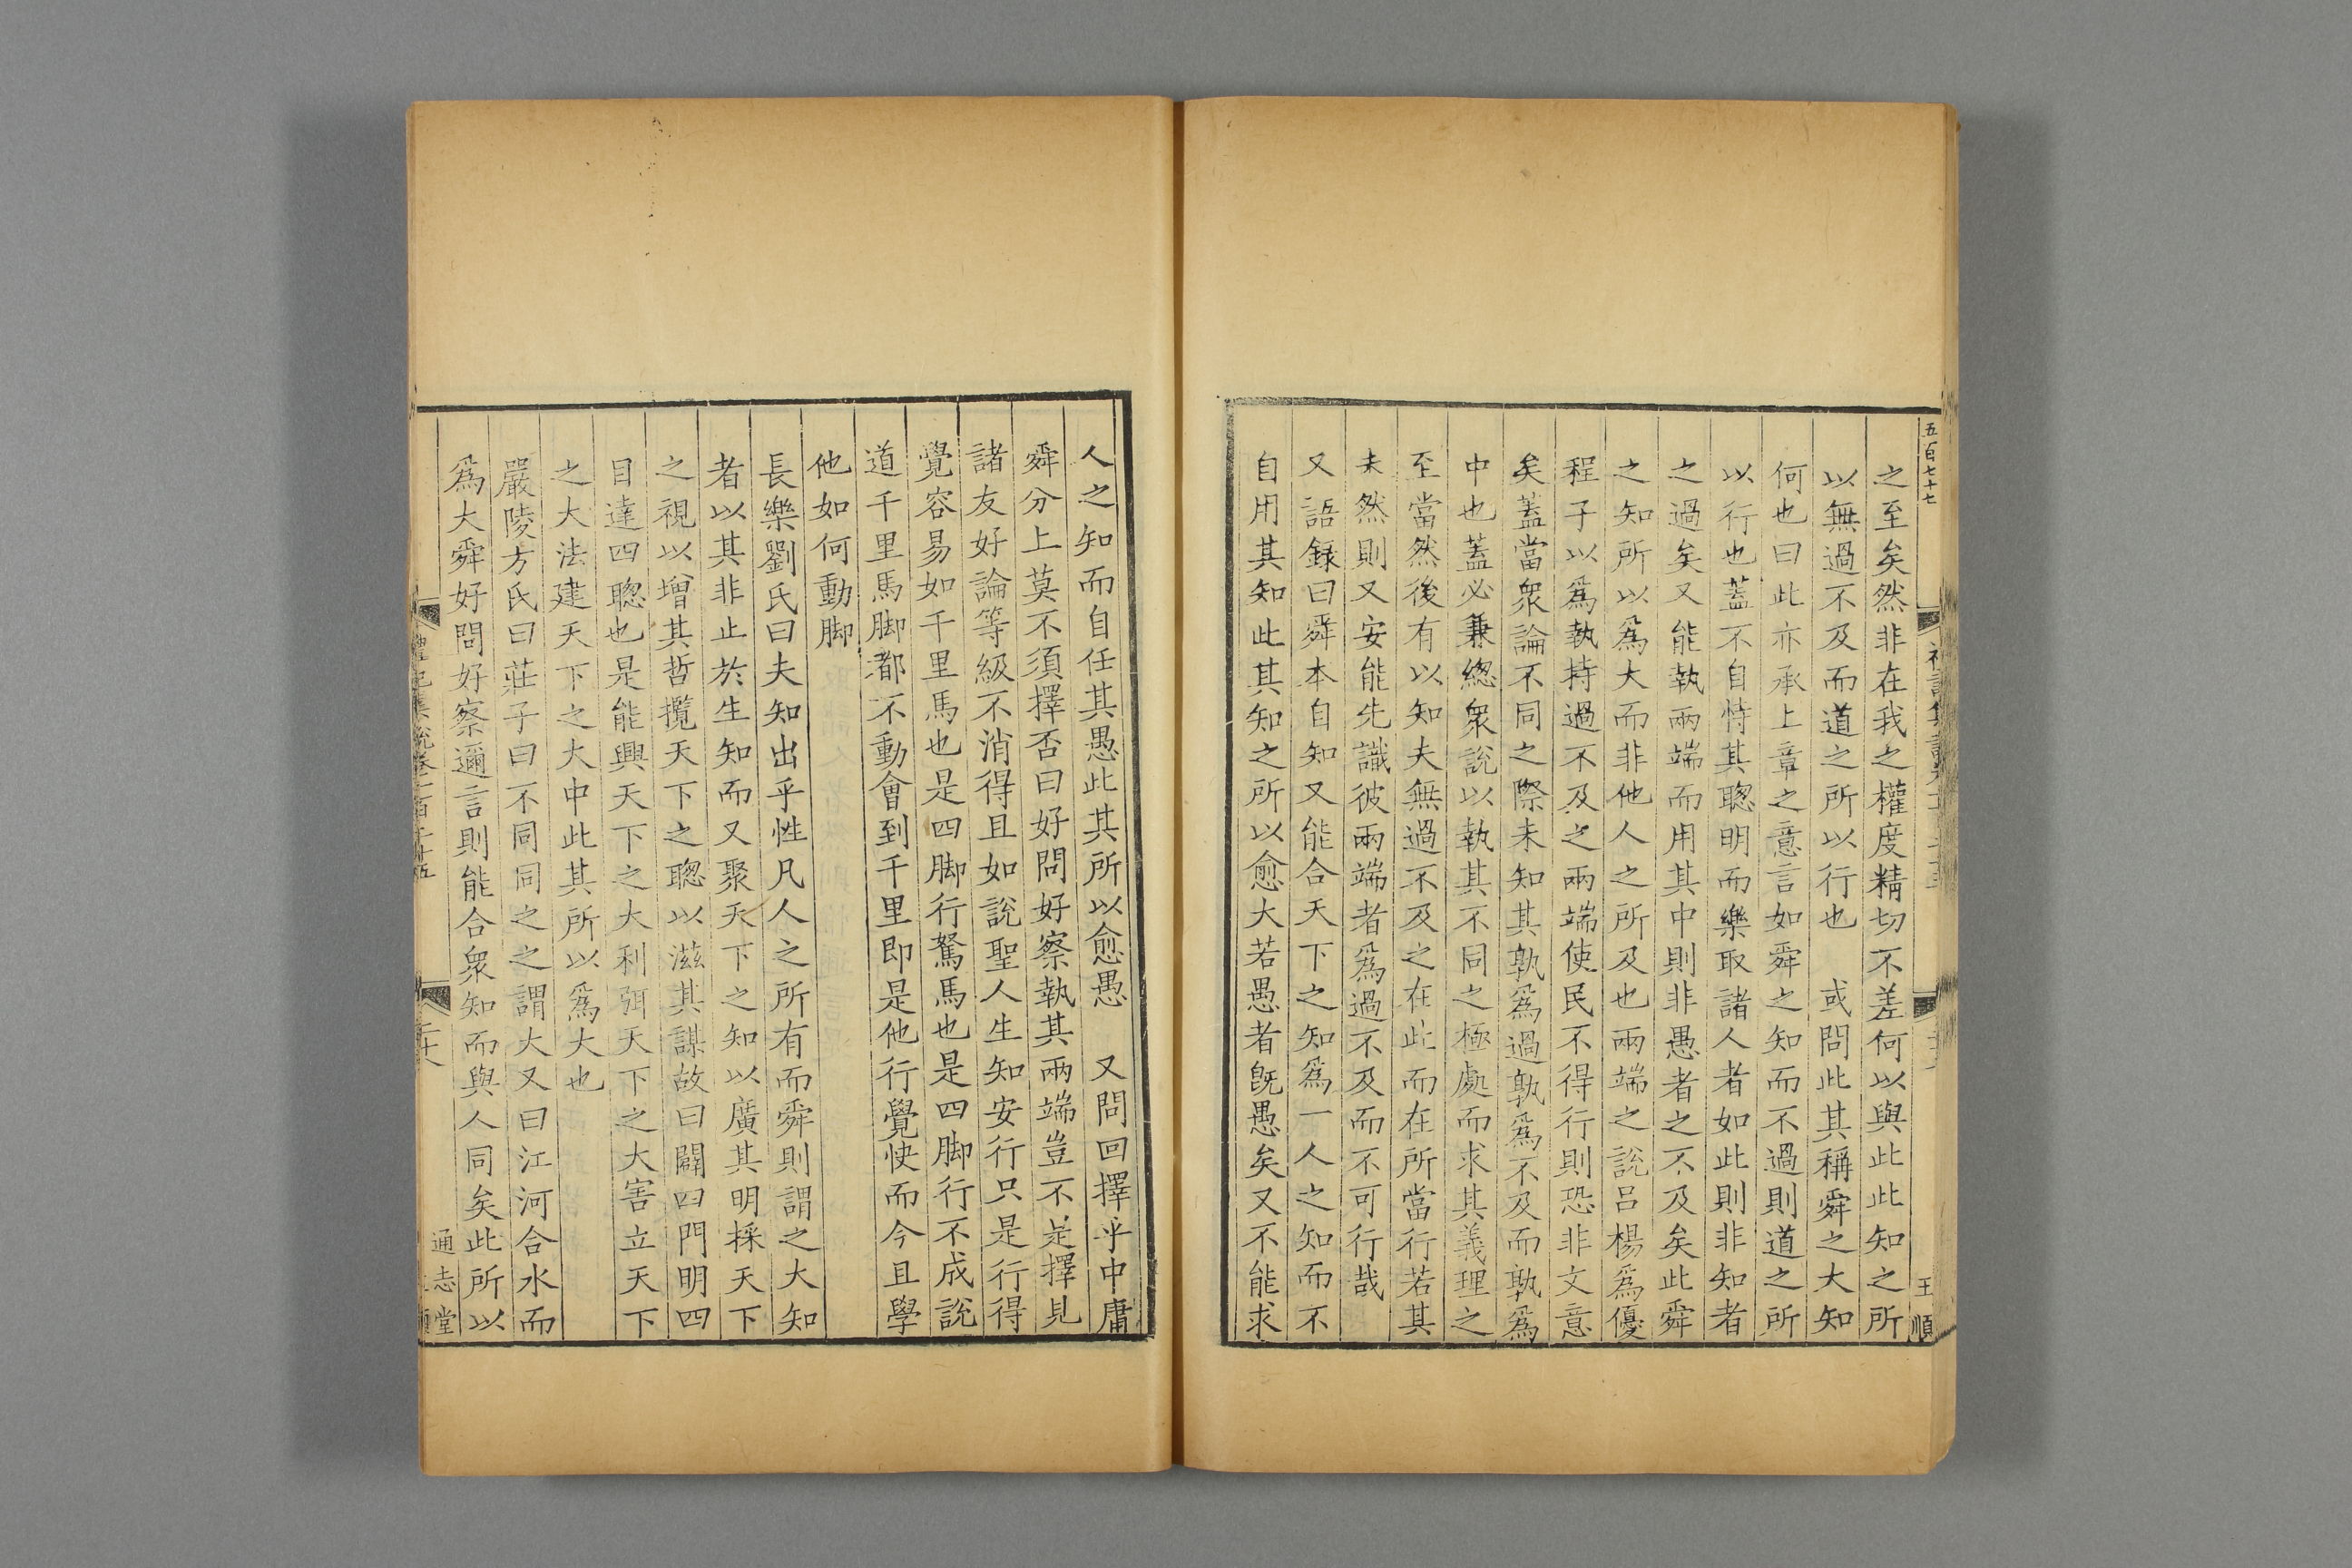 五百七十七
王順
之至矣然非在我之權度精切不差何以與此此知之所
以無過不及而道之所以行也　或問此其稱舜之大知
何也曰此亦承上章之意言如舜之知而不過則道之所
以行也蓋不自恃其聰明而樂取諸人者如此則非知者
之過矣又能執兩端而用其中則非愚者之不及矣此舜
之知所以爲大而非他人之所及也兩端之說呂楊爲優
程子以爲執持過不及之兩端使民不得行則恐非文意
矣蓋當衆論不同之際未知其孰爲過孰爲不及而孰爲
中也蓋必兼總衆說以執其不同之極處而求其義理之
至當然後有以知夫無過不及之在此而在所當行若其
未然則又安能先識彼兩端者爲過不及而不可行哉
又語録曰舜本自知又能合天下之知爲一人之知而不
自用其知此其知之所以愈大若愚者旣愚矣又不能求
人之知而自任其愚此其所以愈愚　又問回擇乎中庸
舜分上莫不須擇否曰好問好察執其兩端豈不是擇見
諸友好論等級不消得且如說聖人生知安行只是行得
覺容易如千里馬也是四脚行駑馬也是四脚行不成說
道千里馬脚都不動會到千里即是他行覺快而今且學
他如何動脚
長樂劉氏曰夫知出乎性凡人之所有而舜則謂之大知
者以其非止於生知而又聚天下之知以廣其明採天下
之視以增其哲攬天下之聰以滋其謀故曰闢四門明四
目達四聰也是能興天下之大利弭天下之大害立天下
之大法建天下之大中此其所以爲大也
嚴陵方氏曰莊子曰不同同之之謂大又曰江河合水而
爲大舜好問好察邇言則能合衆知而與人同矣此所以
禮記集說卷一百二十五
二十八
通志堂